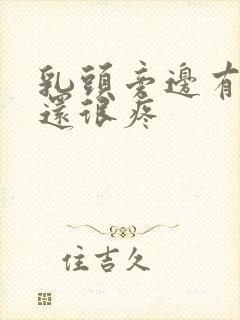 乳頭旁邊有
還很疼
住吉久